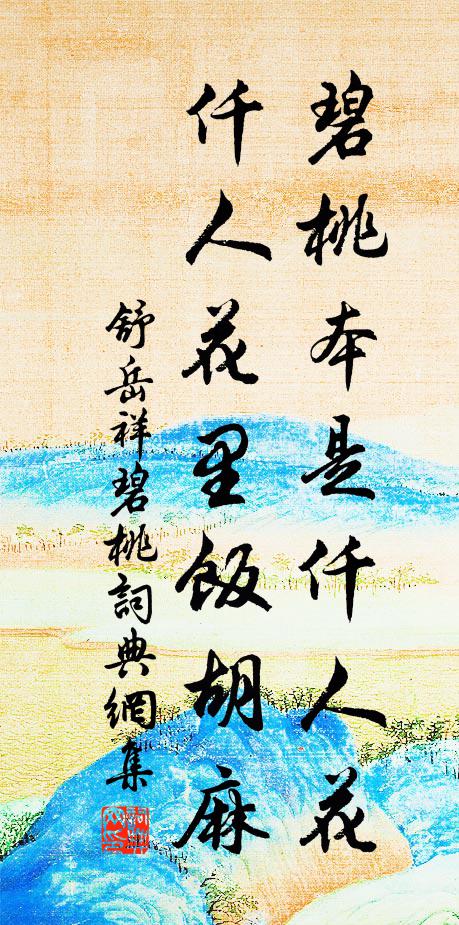 碧桃本是仟人花
仟人花里飯胡麻
舒岳祥碧桃詞典網集